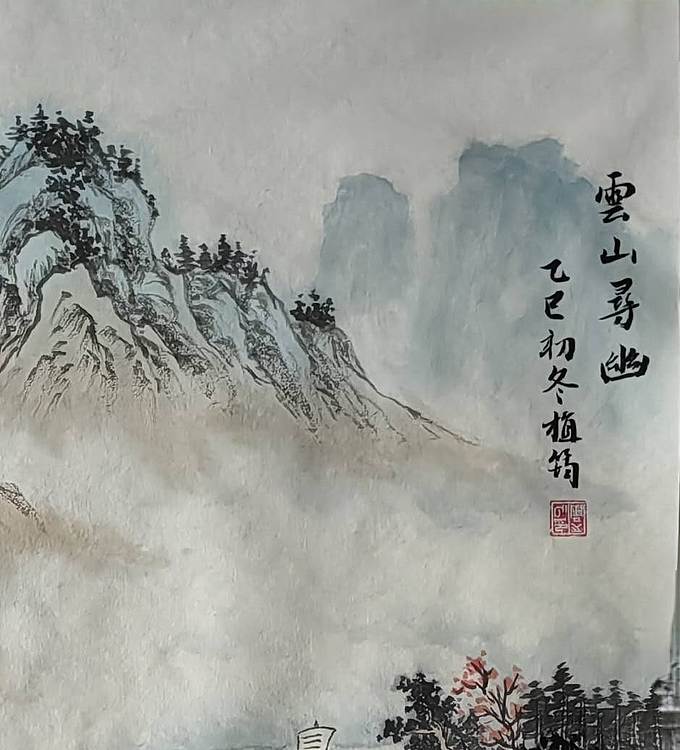 雲山尋幽
乙巳初冬植筠